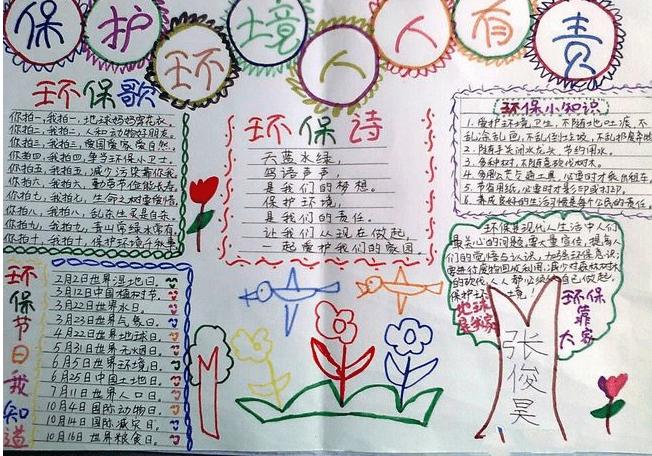 保护环境人人有责
环保歌
你拍一,我拍一,地球妈妈穿花衣。
你拍二,我拍二,人和动物好朋友。
你拍三,我拍三,爱国爱家爱自然。
你拍四,我拍四,争当环保小卫士。
你拍五,我拍五,减少污染靠你我。
你拍六,我拍六,勤俭节位能长寿。
你拍七,我拍七,生命之树要珍惜
你拍八,我拍八,乱杀生灵是自杀。
你拍九,我拍九,青山常绿水常有
你拍十,我拍十,保护环境千秋事
环保诗
天蓝水绿,
鸟语声声,
是我们的梦想。
保护环境,
是我们的责任。
让我们从现在做起,
一起爱护我们的家园。
环保小知识
1.爱护环境卫生,不随地吐痰,不
乱涂乱色,不乱任
2.随手关闭水龙头,节约用水。
3.多种树,不随意砍伐树木。
4.多用公共交通工具,必要时才乘出租车。
5.节省用纸,必要时才影印或打印。
6.养成良好的生活习惯是每个公民的责任。
环保节日我知道
2月2日世界湿地日。
3月12日中国植树节。
3月22日世界水日。
3月23日世界气象日。
4月22日世界地球日。
5月31日世界无烟日。
6月5日世界环境日。
6月25日中国土地日。
7月11日世界人口日。
10月4日国际动物日。
10月14日国际减灾日。
10月16日世界粮食日。
环保是现代人生活中人们
最关心的问题,要大量宣传,提高人
们的觉悟与认识,加强环保意识;
保护环境
地球是我家
环保靠大家
张俊昊